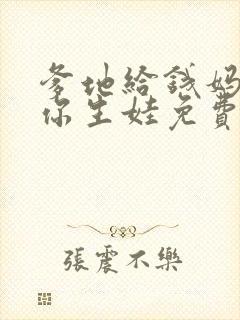 爹地給錢媽
你生娃免費
張震不樂